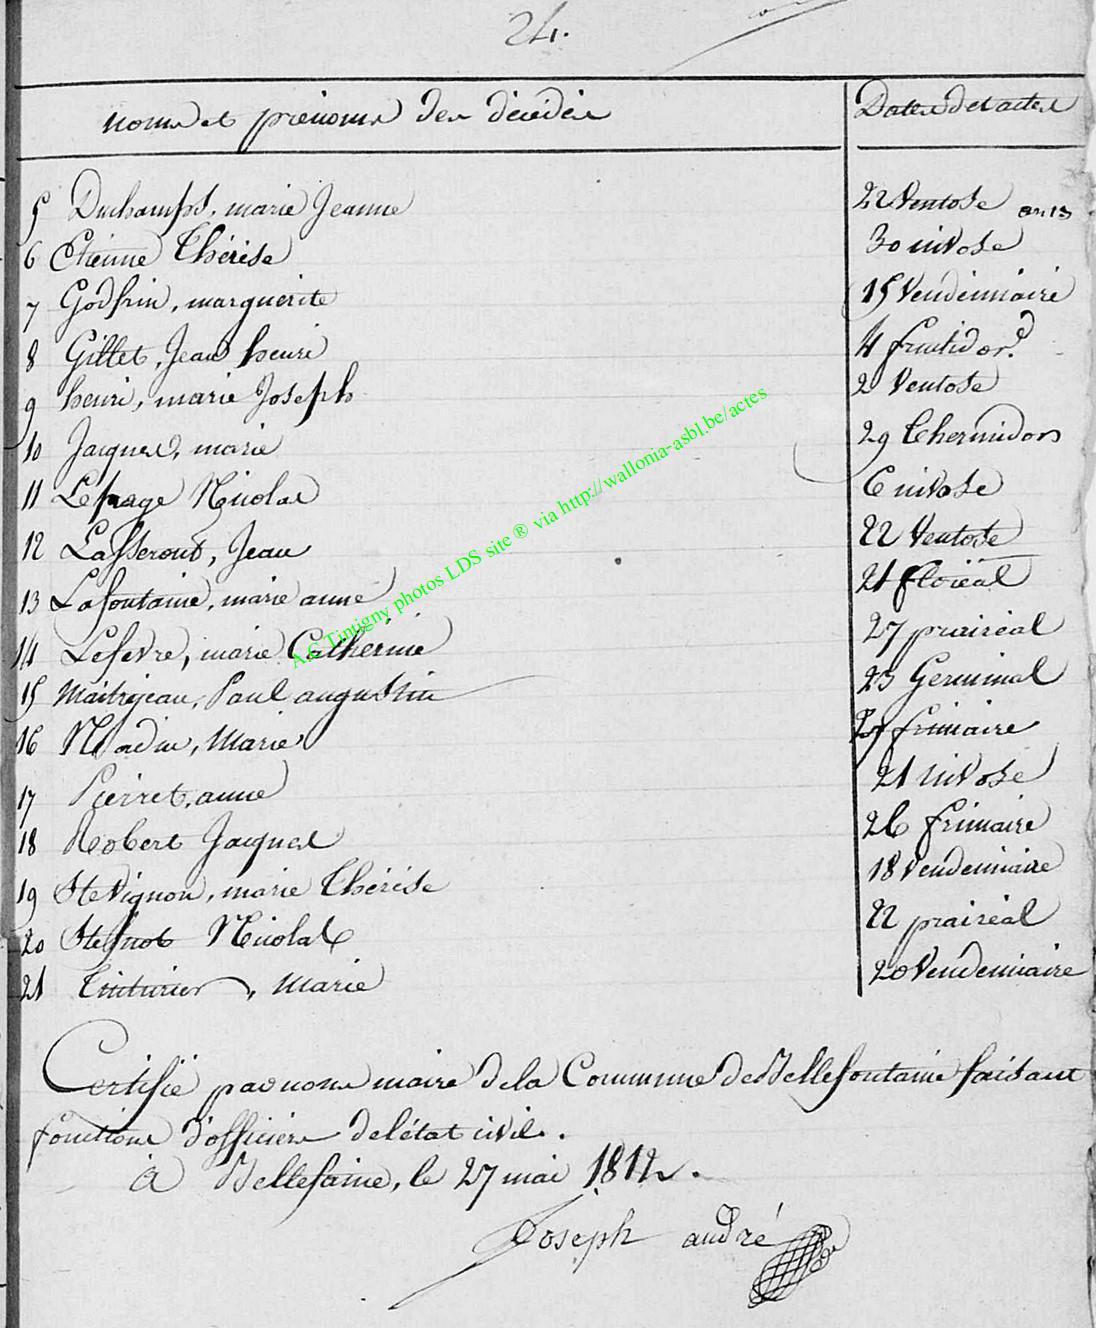 24.
noms et prénoms des décédés Dates des actes
5 Duchamps, marie Jeanne 22 Ventose an 13
6 Etienne Thérèse 30 nivose
7 Godfrin, marguerite 15 Vendemiaire
8 Gillet, Jean henri 4 fructidor
9 henri, marie Joseph 2 Ventose
10 Jacques, marie 29 Thermidor
11 Lepage Nicolas 6 nivose
12 Lasseront, Jean 22 Ventose
13 Lafontaine, marie anne 21 floréal
14 Lefevre, marie Catherine 27 prairéal
15 Maitrejean, Paul augustin 23 Germinal
16 Nadin, Marie frimaire
17 Pierret, anne 21 nivose
18 Robert Jacques 26 frimaire
19 Stevignon, marie Thérèse 18 Vendemiaire
20 Nicolas 22 prairéal
21 Tinturier, Marie 20 Vendemiaire
A.E. Tintigny photos LDS site ® via http://wallonia-asbl.be/actes
Certifié par nous maire de la Commune de Bellefontaine faisant
fonctions d'officier de l'état civil.
à Bellefaine, le 27 mai 1812.
Joseph andré